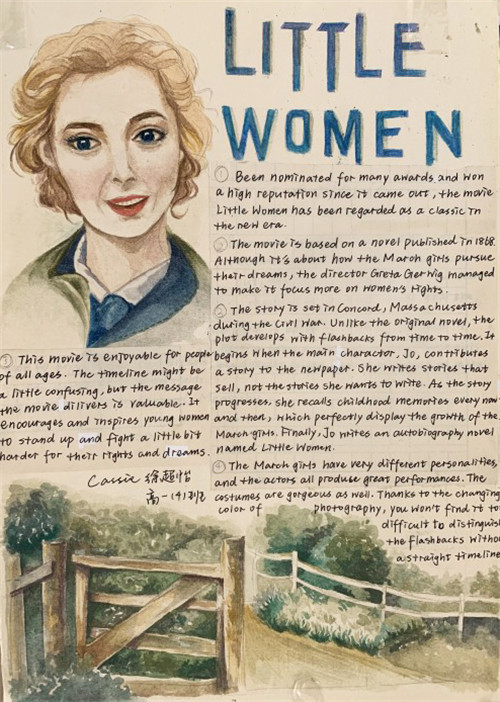 LITTLE
WOMEN
① Been nominated for many awards and won
a high reputation since it came out, the movie
Little Women has been regarded as a classic in
the new era.
② The movie is based on a novel published in 1868.
Although it's about how the March girls pursue
their dreams, the director Greta Gerwig managed
to make it focus more on women's rights.
③ The story is set in Concord, Massachusetts
during the Civil War. Unlike the original novel, the
plot develops with flashbacks from time to time. It
begins when the main charactor, Jo, contributes
a story to the newpaper. She writes stories that
sell, not the stories she wants to write. As the story
progresses, she recalls childhood memories every now
and then, which perfectly display the growth of the
March girls. Finally, Jo writes an autobiography novel
named Little Women.
④ The March girls have very different personalities,
and the actors all produce great performances. The
costumes are gorgeous as well. Thanks to the changing
color of photography, you won't find it to
difficult to distinguish
the flashbacks withou
a straight timeline
⑤ This movie is enjoyable for people
of all ages. The timeline might be
a little confusing, but the message
the movie dilivers is valuable. It
encourages and inspires young women
to stand up and fight a little bit
harder for their rights and dreams.
Cassie 徐
高一